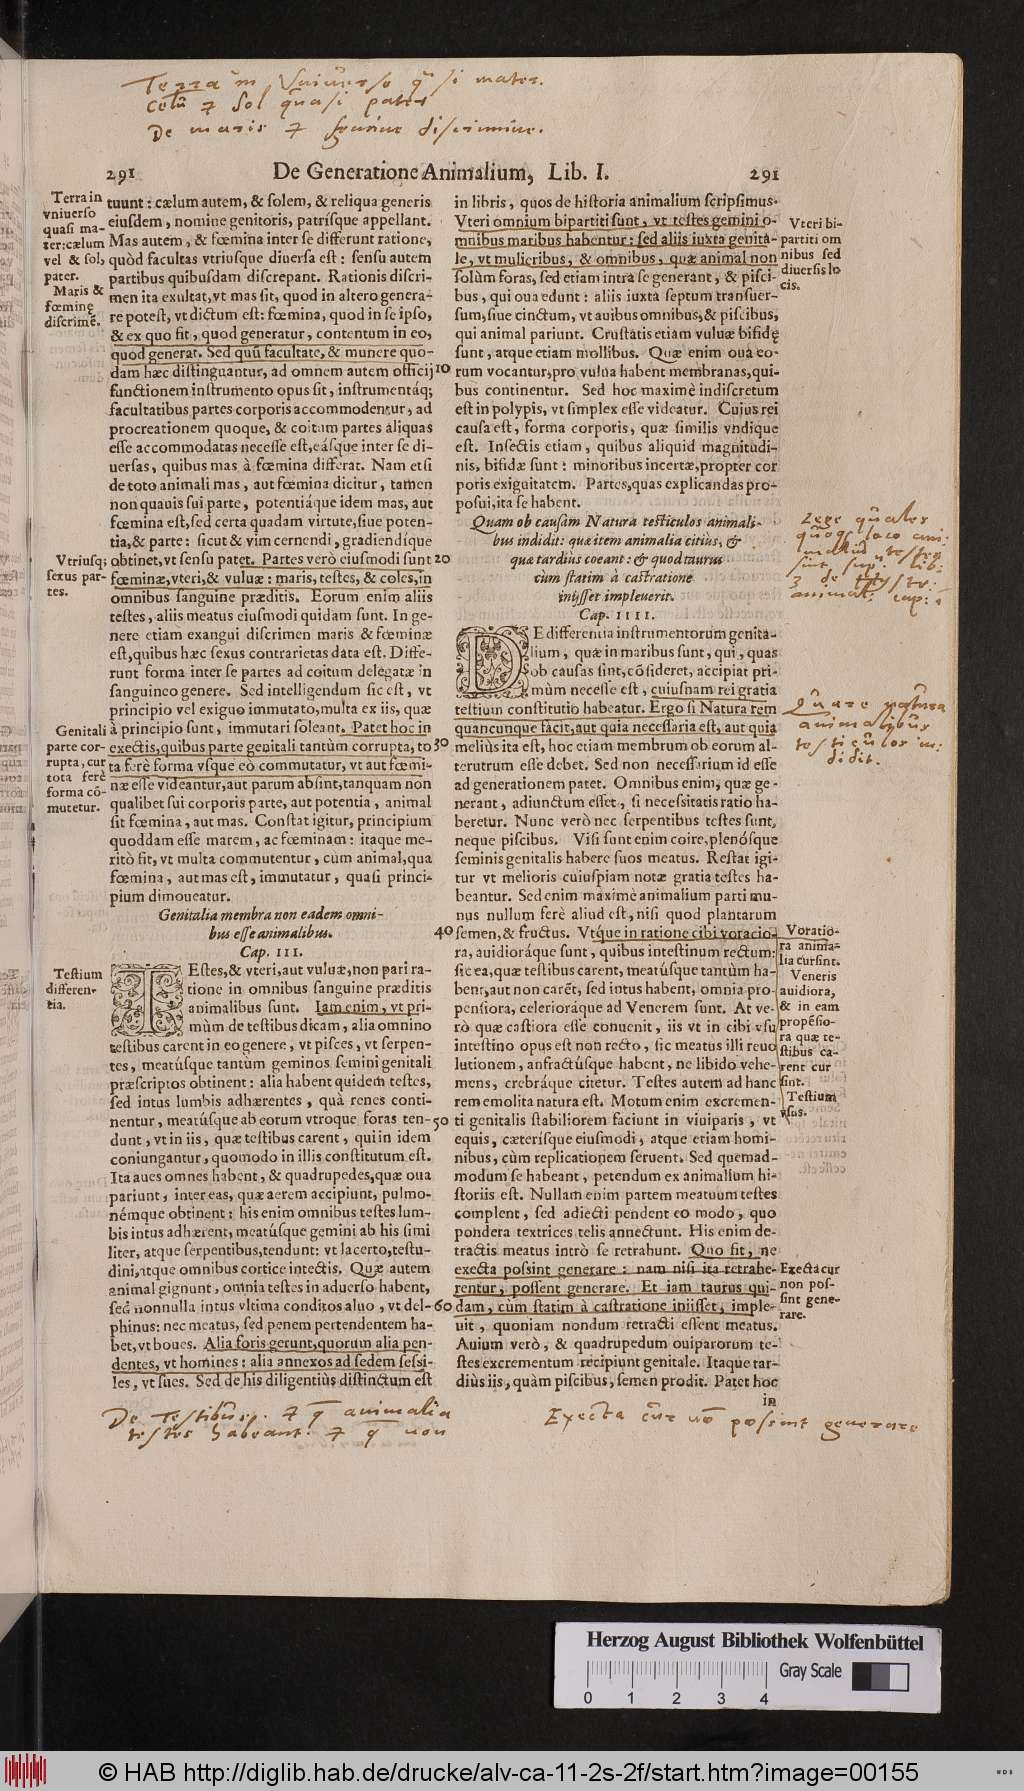 Terra in Vniuerso qu si mater.
Celū & Sol quasi pater
De maris & femine discrimine.
291 De Generatione Animalium, Lib. I. 291
Terra in
vniuerso
quasi ma-
ter: cælum
vel & sol,
pater.
Maris &
fœminę
discrimē.
Vtriusq;
sexus par-
tes.
Genitali
parte cor-
rupta, cur
tota ferè
forma cō-
mutetur.
Testium
differen-
tia.
tuunt: cælum autem, & solem, & reliqua generis
eiusdem, nomine genitoris, patrísque appellant.
Mas autem, & fœmina inter se differunt ratione,
quòd facultas vtriusque diuersa est: sensu autem
partibus quibusdam discrepant. Rationis discri-
men ita exultat, vt mas sit, quod in altero genera-
re potest, vt dictum est: fœmina, quod in se ipso,
& ex quo fit, quod generatur, contentum in eo,
quod generat. Sed quū facultate, & munere quo-
dam hæc distinguantur, ad omnem autem officij 10
functionem instrumento opus sit, instrumentáq;
facultatibus partes corporis accommodentur, ad
procreationem quoque, & coitum partes aliquas
esse accommodatas necesse est, eásque inter se di-
uersas, quibus mas à fœmina differat. Nam etsi
de toto animali mas, aut fœmina dicitur, tamen
non quauis sui parte, potentiáque idem mas, aut
fœmina est, sed certa quadam virtute, siue poten-
tia, & parte: sicut & vim cernendi, gradiendíque
obtinet, vt sensu patet. Partes verò eiusmodi sunt 20
fœminæ, vteri, & vuluæ: maris, testes, & coles, in
omnibus sanguine præditis. Eorum enim aliis
testes, aliis meatus eiusmodi quidam sunt. In ge-
nere etiam exangui discrimen maris & fœminæ
est, quibus hæc sexus contrarietas data est. Diffe-
runt forma inter se partes ad coitum delegatæ in
sanguineo genere. Sed intelligendum sic est, vt
principio vel exiguo immutato, multa ex iis, quæ
à principio sunt, immutari soleant. Patet hoc in
exectis, quibus parte genitali tantùm corrupta, to 30
ta ferè forma vsque eò commutatur, vt aut fœmi-
næ esse videantur, aut parum absint, tanquam non
qualibet sui corporis parte, aut potentia, animal
sit fœmina, aut mas. Constat igitur, principium
quoddam esse marem, ac fœminam: itaque me-
ritò fit, vt multa commutentur, cùm animal, qua
fœmina, aut mas est, immutatur, quasi princi-
pium dimoueatur.
Genitalia membra non eadem omni-
bus esse animalibus. 40
Cap. III.
TEstes, & vteri, aut vuluæ, non pari ra-
tione in omnibus sanguine præditis
animalibus sunt. Iam enim, vt pri-
mùm de testibus dicam, alia omnino
testibus carent in eo genere, vt pisces, vt serpen-
tes, meatúsque tantùm geminos semini genitali
præscriptos obtinent: alia habent quidem testes,
sed intus lumbis adhærentes, quà renes conti-
nentur, meatúsque ab eorum vtroque foras ten- 50
dunt, vt in iis, quæ testibus carent, qui in idem
coniungantur, quomodo in illis constitutum est.
Ita aues omnes habent, & quadrupedes, quæ oua
pariunt, inter eas, quæ aerem accipiunt, pulmo-
némque obtinent: his enim omnibus testes lum-
bis intus adhærent, meatúsque gemini ab his simi
liter, atque serpentibus, tendunt: vt lacerto, testu-
dini, atque omnibus cortice intectis. Quæ autem
animal gignunt, omnia testes in aduerso habent,
sed nonnulla intus vltima conditos aluo, vt del- 60
phinus: nec meatus, sed penem pertendentem ha-
bet, vt boues. Alia foris gerunt, quorum alia pen-
dentes, vt homines: alia annexos ad sedem sessi-
les, vt sues. Sed de his diligentiùs distinctum est
in libris, quos de historia animalium scripsimus.
Vteri omnium bipartiti sunt, vt testes gemini o-
mnibus maribus habentur: sed aliis iuxta genita-
le, vt mulieribus, & omnibus, quæ animal non
solùm foras, sed etiam intra se generant, & pisci-
bus, qui oua edunt: aliis iuxta septum transuer-
sum, siue cinctum, vt auibus omnibus, & piscibus,
qui animal pariunt. Crustatis etiam vuluæ bifidę
sunt, atque etiam mollibus. Quæ enim oua eo-
rum vocantur, pro vulua habent membranas, qui-
bus continentur. Sed hoc maximè indiscretum
est in polypis, vt simplex esse videatur. Cuius rei
causa est, forma corporis, quæ similis vndique
est. Insectis etiam, quibus aliquid magnitudi-
nis, bifidæ sunt: minoribus incertæ, propter cor
poris exiguitatem. Partes, quas explicandas pro-
posui, ita se habent.
Quam ob causam Natura testiculos animali-
bus indidit: quæ item animalia citiùs, &
quæ tardiùs coeant: & quod taurus
cùm statim à castratione
iniisset impleuerit.
Cap. IIII.
DE differentia instrumentorum genita-
lium, quæ in maribus sunt, qui, quas
ob causas sint, cōsideret, accipiat pri-
mùm necesse est, cuiusnam rei gratia
testium constitutio habeatur. Ergo si Natura rem
quancunque facit, aut quia necessaria est, aut quia
meliùs ita est, hoc etiam membrum ob eorum al-
terutrum esse debet. Sed non necessarium id esse
ad generationem patet. Omnibus enim, quæ ge-
nerant, adiunctum esset, si necessitatis ratio ha-
beretur. Nunc verò nec serpentibus testes sunt,
neque piscibus. Visi sunt enim coire, plenósque
seminis genitalis habere suos meatus. Restat igi-
tur vt melioris cuiuspiam notæ gratia testes ha-
beantur. Sed enim maximè animalium parti mu-
nus nullum ferè aliud est, nisi quod plantarum
semen, & fructus. Vtque in ratione cibi voracio-
ra, auidioráque sunt, quibus intestinum rectum:
sic ea, quæ testibus carent, meatúsque tantùm ha-
bent, aut non carēt, sed intus habent, omnia pro-
pensiora, celerioráque ad Venerem sunt. At ve-
rò quæ castiora esse conuenit, iis vt in cibi vsu
intestino opus est non recto, sic meatus illi reuo
lutionem, anfractúsque habent, ne libido vehe-
mens, crebráque citetur. Testes autem ad hanc
rem emolita natura est. Motum enim excremen-
ti genitalis stabiliorem faciunt in viuiparis, vt
equis, cæterísque eiusmodi, atque etiam homi-
nibus, cùm replicationem seruent. Sed quemad-
modum se habeant, petendum ex animalium hi-
storiis est. Nullam enim partem meatuum testes
complent, sed adiecti pendent eo modo, quo
pondera textrices telis annectunt. His enim de-
tractis meatus intrò se retrahunt. Quo fit, ne
execta possint generare: nam nisi ita retrahe-
rentur, possent generare. Et iam taurus qui-
dam, cùm statim à castratione iniisset, imple-
uit, quoniam nondum retracti essent meatus.
Auium verò, & quadrupedum ouiparorum te-
stes excrementum recipiunt genitale. Itaque tar-
diùs iis, quàm piscibus, semen prodit. Patet hoc
in
Vteri bi-
partiti om
nibus sed
diuersis lo
cis.
Lege quales
quoq; loco ani
malium testes
sint, sup. lib:
3 de
animal: cap: 1
Quare natura
animalibus
testiculos in:
didit.
Voratio-
ra anima-
lia cur sint.
Veneris
auidiora,
& in eam
propēsio-
ra quæ te-
stibus ca-
rent cur
sint.
Testium
vsus.
Execta cur
non pos-
sint gene-
rare.
De Testibus. & q animalia
testes habeant. & q non
Execta cur nō possint generare
Herzog August Bibliothek Wolfenbüttel
Gray Scale
0 1 2 3 4
© HAB http://diglib.hab.de/drucke/alv-ca-11-2s-2f/start.htm?image=00155